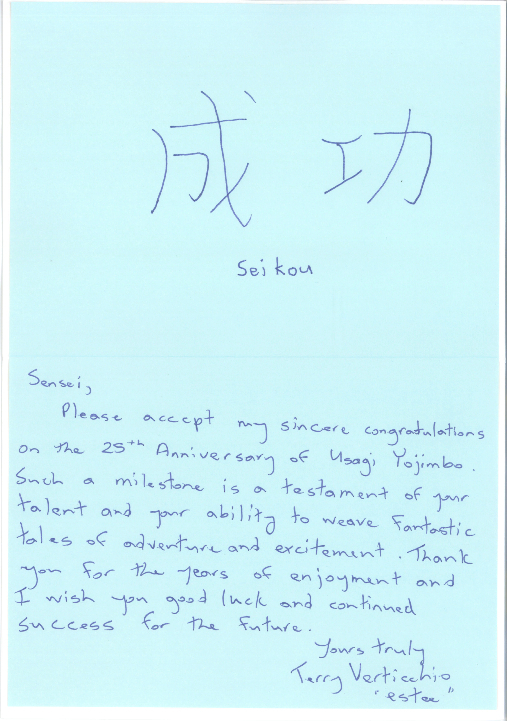 成功
Seikou
Sensei,
Please accept my sincere congratulations
on the 25th Anniversary of Usagi Yojimbo.
Such a milestone is a testament of your
talent and your ability to weave fantastic
tales of adventure and excitement. Thank
you for the years of enjoyment and
I wish you good luck and continued
success for the future.
Yours truly
Terry Verticchio
"estee"